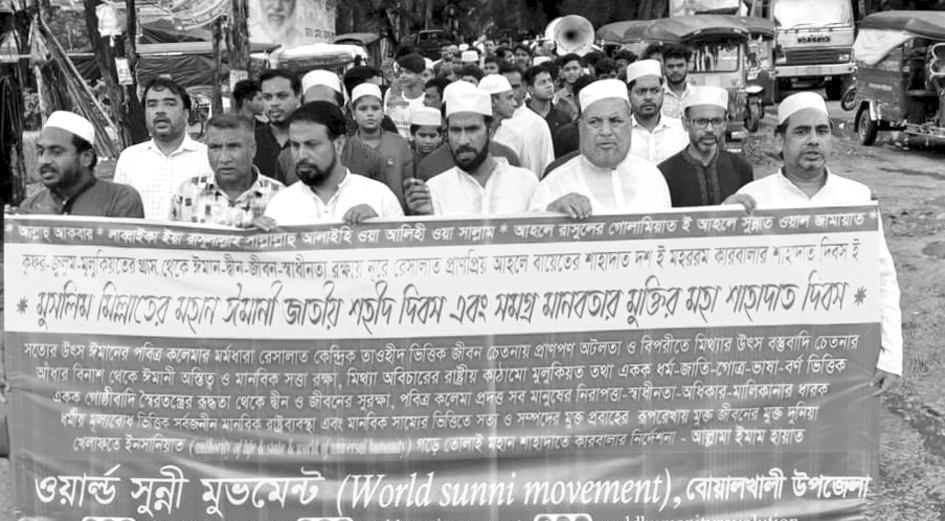 * আল্লাহু আকবার * লাব্বাইকা ইয়া রাসুলাল্লাহ সাল্লাল্লাহু আলাইহি ওয়া আলিহী ওয়া সাল্লাম * আহলে রাসুলের গোলামিয়াত ই আহলে সুন্নাত ওয়াল জামায়াত *
কুফর-জুলুম-মুলুকিয়তের গ্রাস থেকে ঈমান-দ্বীন-জীবন-স্বাধীনতা রক্ষায় নূরে রেসালাত প্রাণপ্রিয় আহলে বায়েতের শাহাদাত দশ ই মহররম কারবালার শাহাদাত দিবস ই
* মুসলিম মিল্লাতের মহান ঈমানী জাতীয় শহীদ দিবস এবং সমগ্র মানবতার মুক্তির মহা শাহাদাত দিবস *
সত্যের উৎস ঈমানের পবিত্র কলেমার মর্মধারা রেসালাত কেন্দ্রিক তাওহীদ ভিত্তিক জীবন চেতনায় প্রাণপণ অটলতা ও বিপরীতে মিথ্যার উৎস বস্তুবাদি চেতনার
আঁধার বিনাশ থেকে ঈমানী অস্তিত্ব ও মানবিক সত্তা রক্ষা, মিথ্যা অবিচারের রাষ্ট্রীয় কাঠামো মুলুকিয়ত তথা একক ধর্ম-জাতি-গোত্র-ভাষা-বর্ণ ভিত্তিক
একক গোষ্ঠীবাদি স্বৈরতন্ত্রের রূদ্ধতা থেকে দ্বীন ও জীবনের সুরক্ষা, পবিত্র কলেমা প্রদত্ত সব মানুষের নিরাপত্তা-স্বাধীনতা-অধিকার-মালিকানার ধারক
ধর্মীয় মূল্যবোধ ভিত্তিক সর্বজনীন মানবিক রাষ্ট্রব্যবস্থা এবং মানবিক সাম্যের ভিত্তিতে সত্য ও সম্পদের মুক্ত প্রবাহের রূপরেখায় মুক্ত জীবনের মুক্ত দুনিয়া
খেলাফতে ইনসানিয়াত গড়ে তোলাই মহান শাহাদাতে কারবালার নির্দেশনা - আল্লামা ইমাম হায়াত
ওয়ার্ল্ড সুন্নী মুভমেন্ট (World sunni movement), বোয়ালখালী উপজেলা